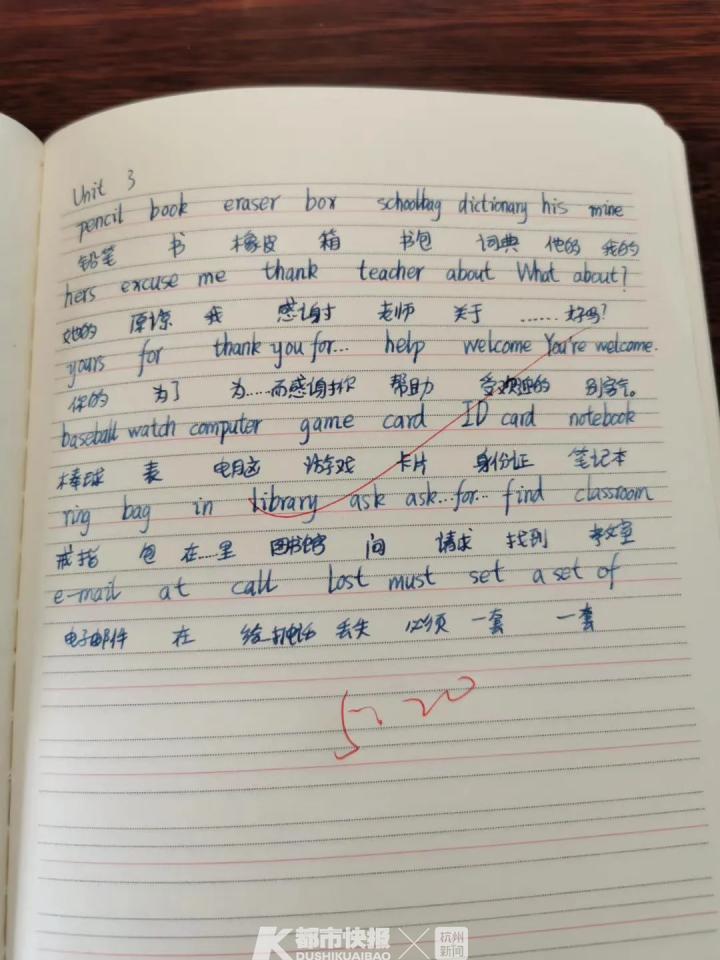 Unit 3
pencil book eraser box schoolbag dictionary his mine
铅笔 书 橡皮 箱 书包 词典 他的 我的
hers excuse me thank teacher about What about?
她的 原谅 我 感谢 老师 关于 ……好吗?
yours for thank you for... help welcome You're welcome.
你的 为了 为……而感谢你 帮助 受欢迎的 别客气。
baseball watch computer game card ID card notebook
棒球 表 电脑 游戏 卡片 身份证 笔记本
ring bag in library ask ask...for... find classroom
戒指 包 在……里 图书馆 问 请求 找到 教室
e-mail at call lost must set a set of
电子邮件 在 给打电话 丢失 必须 一套 一套
5.20
都市快报 × 杭州新闻
DUSHIKUAIBAO